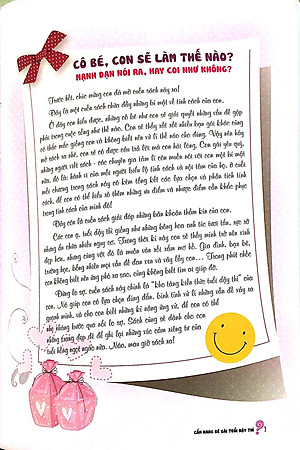 CÔ BÉ, CON SẼ LÀM THẾ NÀO?
MẠNH DẠN NÓI RA, HAY COI NHƯ KHÔNG?
Trước hết, chúc mừng con đã mở cuốn sách này ra!
Đây là một cuốn sách chứa đầy những bí mật về tính cách của con.
Ở đây con hiểu được, những cô bé như con sẽ giải quyết những vấn đề gặp
phải trong cuộc sống như thế nào. Con sẽ thấy rất rất nhiều bạn gái khác cũng
có thắc mắc giống con và không biết nên xử lí thế nào cho đúng. Vậy nên hãy
mở sách ra nhé, con sẽ có được câu trả lời mà con hài lòng. Con gái yêu quý,
những người viết sách - các chuyên gia tâm lí còn muốn nói với con một bí mật
nữa, đó là: hành vi của mỗi người biểu lộ tính cách và nội tâm của họ, ở cuối
mỗi chương trong sách này có kèm tổng kết các lựa chọn và phân tích tính
cách, để con có thể hiểu rõ thêm những ưu điểm và nhược điểm cần khắc phục
trong tính cách của mình đó!
Đây còn là cuốn sách giải đáp những băn khoăn thầm kín của con.
Các con ạ, tuổi dậy thì giống như những bông hoa anh túc tươi tắn, rực rỡ
nhưng ẩn chứa nhiều nguy cơ. Trong thời kì này con sẽ thấy mình trở nên xinh
đẹp hơn, nhưng cùng với đó là muôn vàn nỗi sầm mơ hồ. Gia đình, bạn bè,
trường học, bỗng nhiên mọi vấn đề đan xen và vây lấy con... Trong phút chốc
con không biết nên ứng phó ra sao, cũng không biết tìm ai giúp đỡ.
Đừng lo sợ, cuốn sách này chính là "kho tàng kiến thức tuổi dậy thì" của
con. Nó giúp con có lựa chọn đúng đắn, bình tĩnh xử lí những vấn đề xảy ra
quanh mình, và cho con biết những kĩ năng ứng xử, để con có thể
nhẹ nhàng bước qua nỗi lo sợ. Sách cũng sẽ dành cho con
những trang đẹp đẽ để ghi lại những xúc cảm riêng tư của
tuổi hồng ngọt ngào nữa. Nào, mau giở sách ra!
CẨM NANG BÉ GÁI TUỔI DẬY THÌ